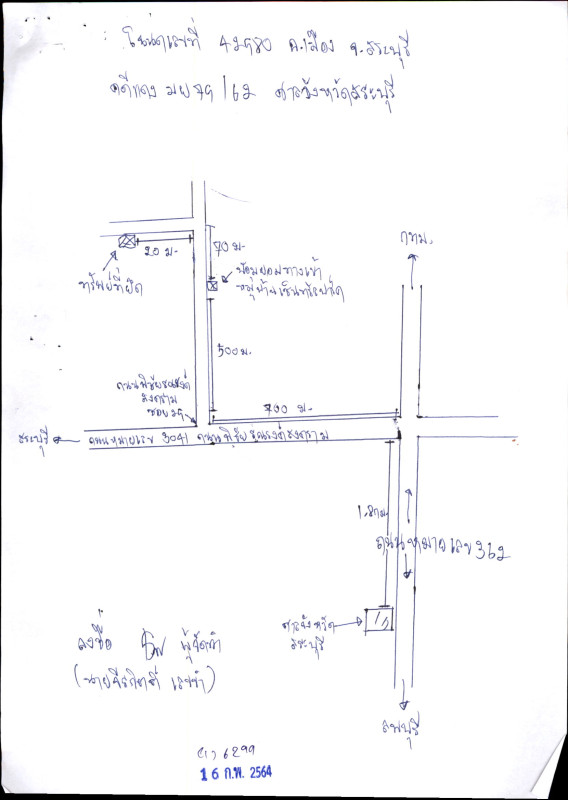 โฉนดเลขที่ 42580 อ.เมือง จ.สระบุรี
คดีแดง มย 79/62 ศาลจังหวัดสระบุรี
กทม.
20 ม.
70 ม.
ทรัพย์ที่ยึด
ป้อมยามทางเข้า
หมู่บ้านเซ็นทรัลปาร์ค
500 ม.
ถนนพิชัยรณรงค์
สงคราม
ซอย 29
700 ม.
สระบุรี
ถนนหมายเลข 3041 ถนนพิชัยรณรงค์สงคราม
1.8 กม.
ถนนหมายเลข 362
ศาลจังหวัด
สระบุรี
ลงชื่อ ผู้จัดทำ
ลพบุรี
6299
16 ก.พ. 2564